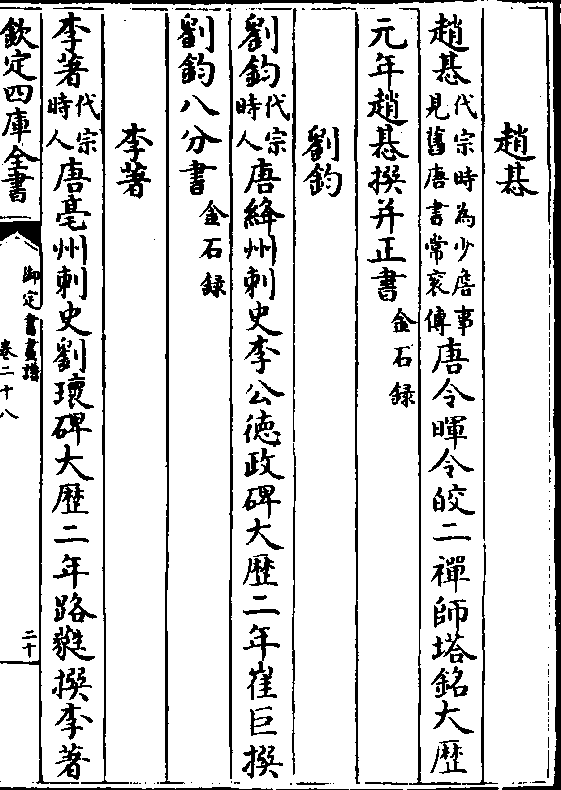 趙惎
趙惎代宗時為少詹事見舊唐書常袞傳唐令暉令皎二禪師塔銘大歷
元年趙惎撰并正書金石録
劉鈞
劉鈞代宗時人唐絳州刺史李公徳政碑大歷二年崔巨撰
劉鈞八分書金石録
李著
李著代宗時人唐亳州刺史劉瓌碑大歷二年路
撰李著
欽定四庫全書
御定書畫譜
卷二十八
二十